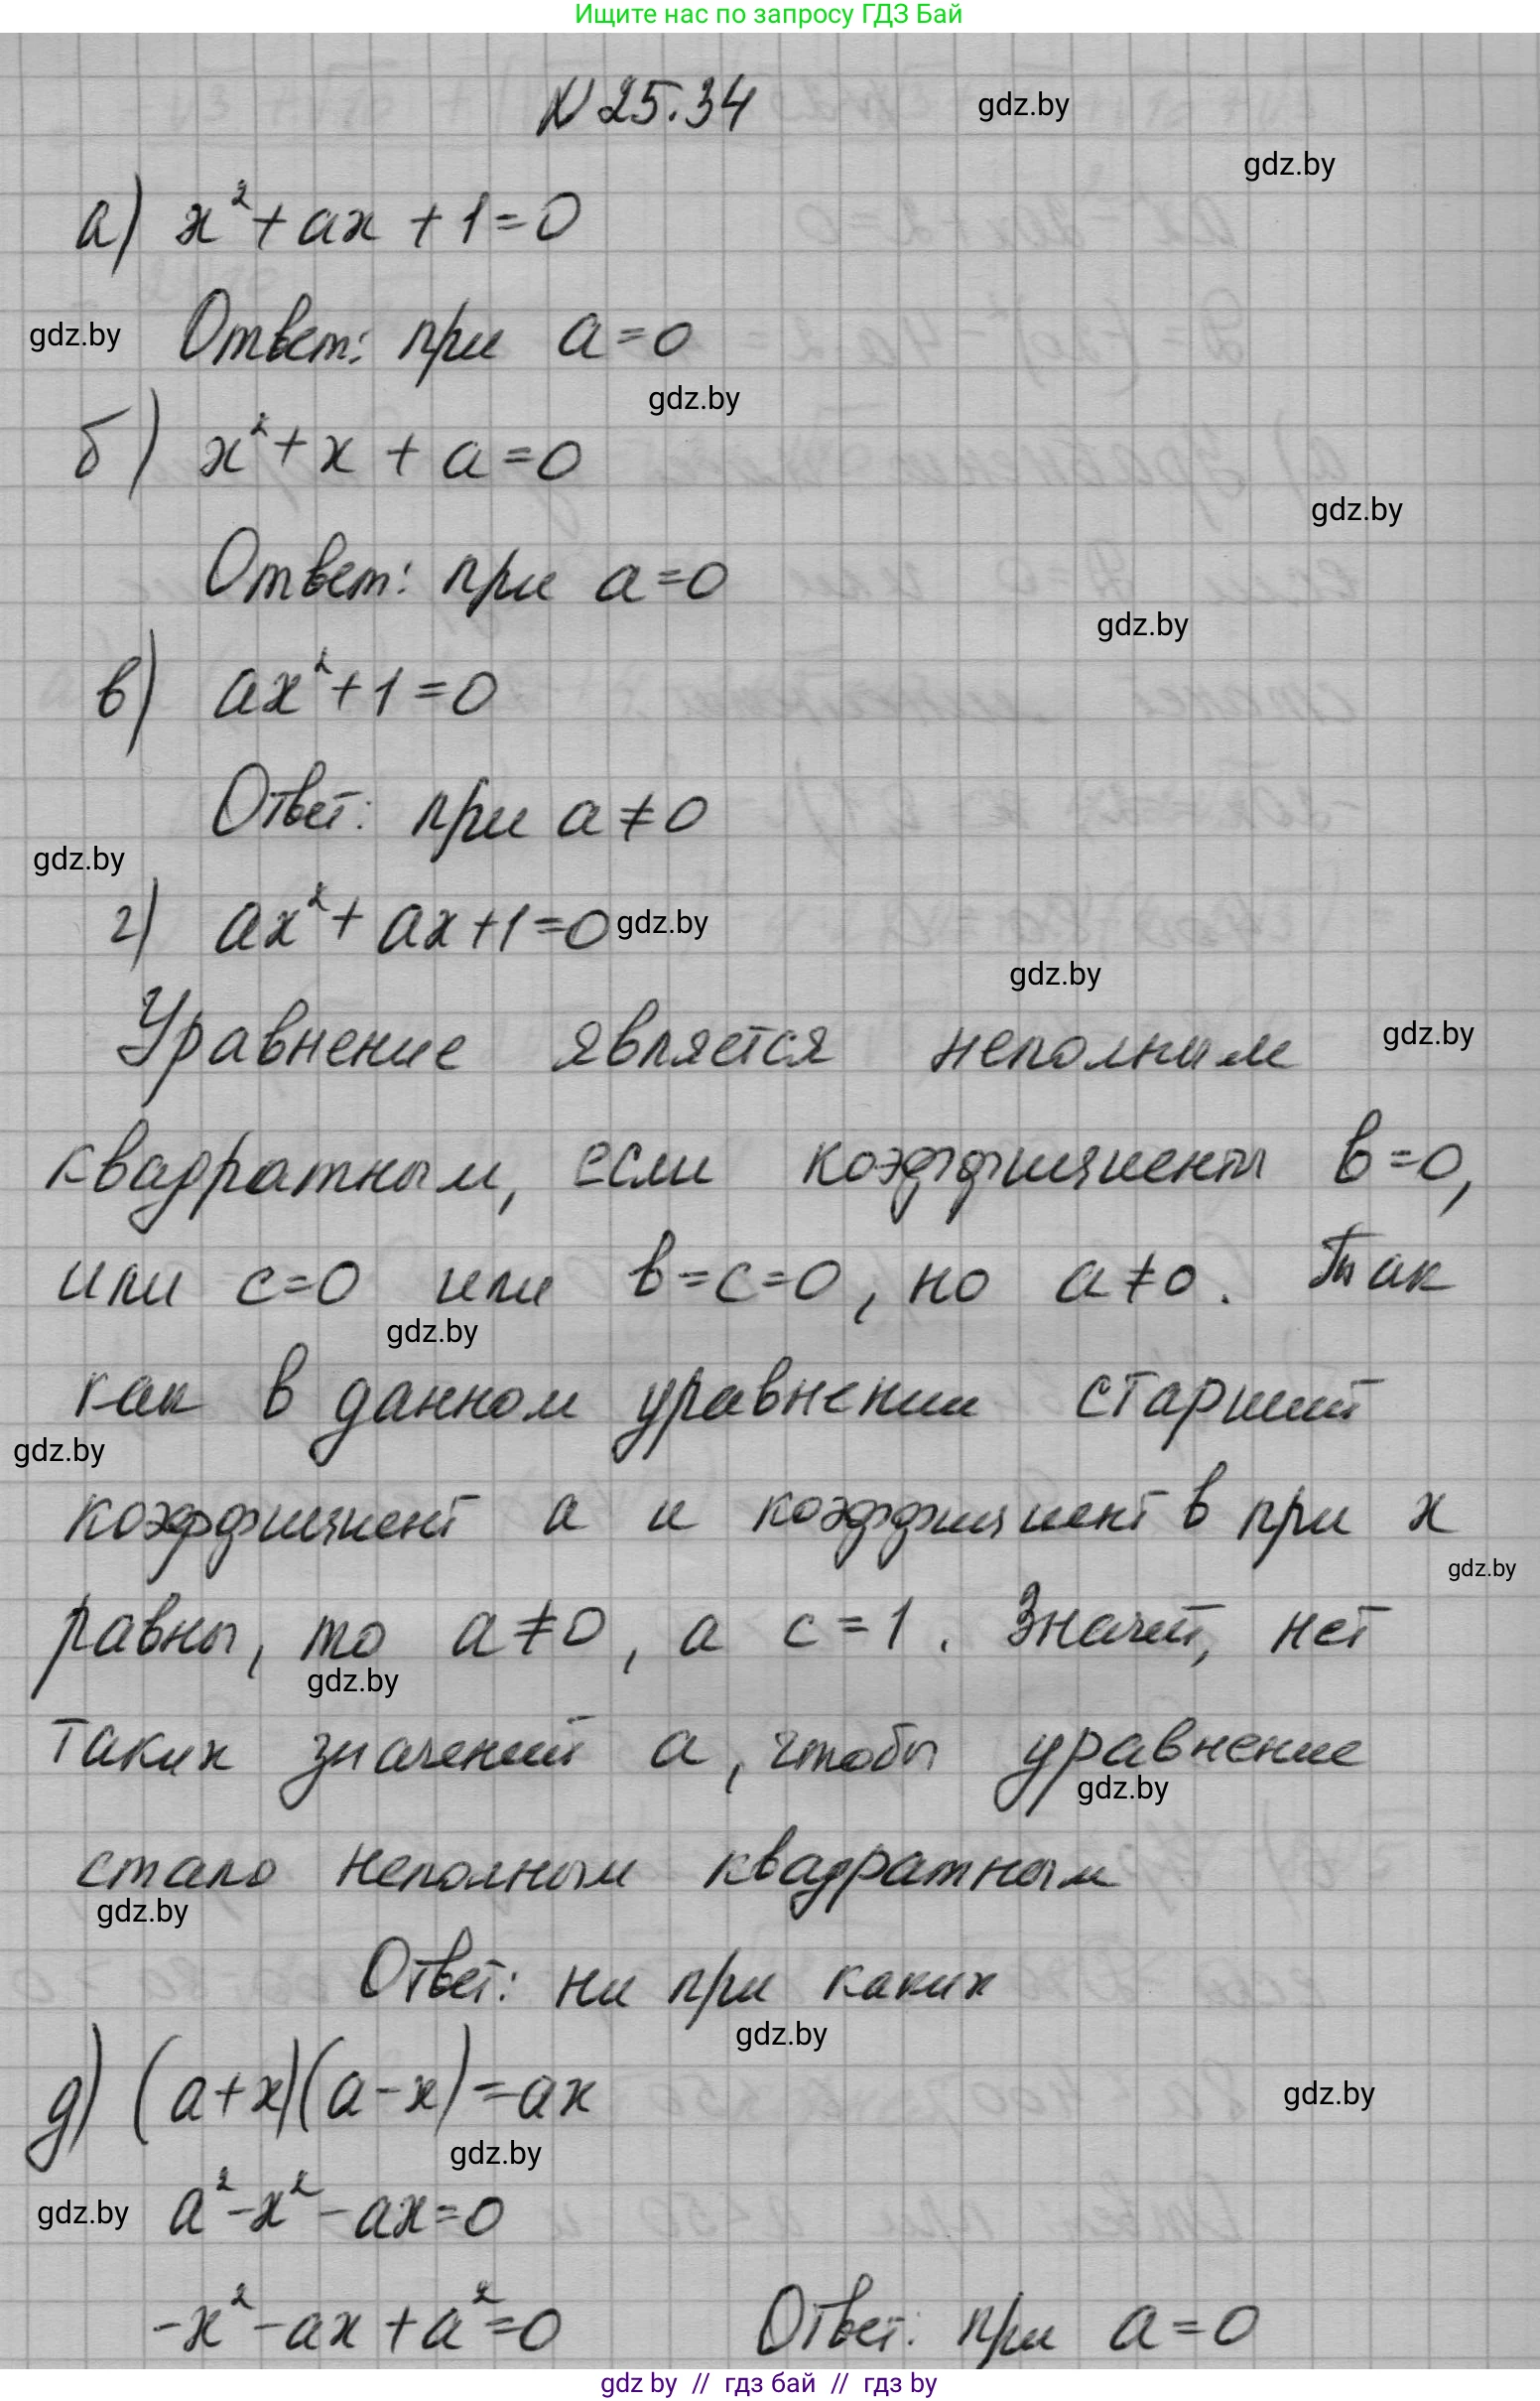 Ищите нас по запросу ГДЗ Бай
N 25.34
gdz.by
gdz.by
а) x²+ax+1=0
gdz.by
Ответ: при a=0
gdz.by
б) x²+x+a=0
gdz.by
Ответ: при a=0
gdz.by
в) ax²+1=0
Ответ: при a≠0
gdz.by
г) ax²+ax+1=0
gdz.by
gdz.by
Уравнение является неполным
gdz.by
квадратным, если коэффициенты в=0,
или с=0 или в=с=0, но а≠0. Так
gdz.by
как в данном уравнении старший
gdz.by
коэффициент а и коэффициент в при х
gdz.by
равны, то а≠0, а с=1. Значит, нет
gdz.by
таких значений а, чтобы уравнение
gdz.by
стало неполным квадратным
gdz.by
Ответ: ни при каких
gdz.by
д) (a+x)(a-x)=ax
gdz.by
gdz.by
gdz.by
a²-x²-ax=0
-x²-ax+a²=0 Ответ: при a=0
gdz by // гдз бай // гдз by